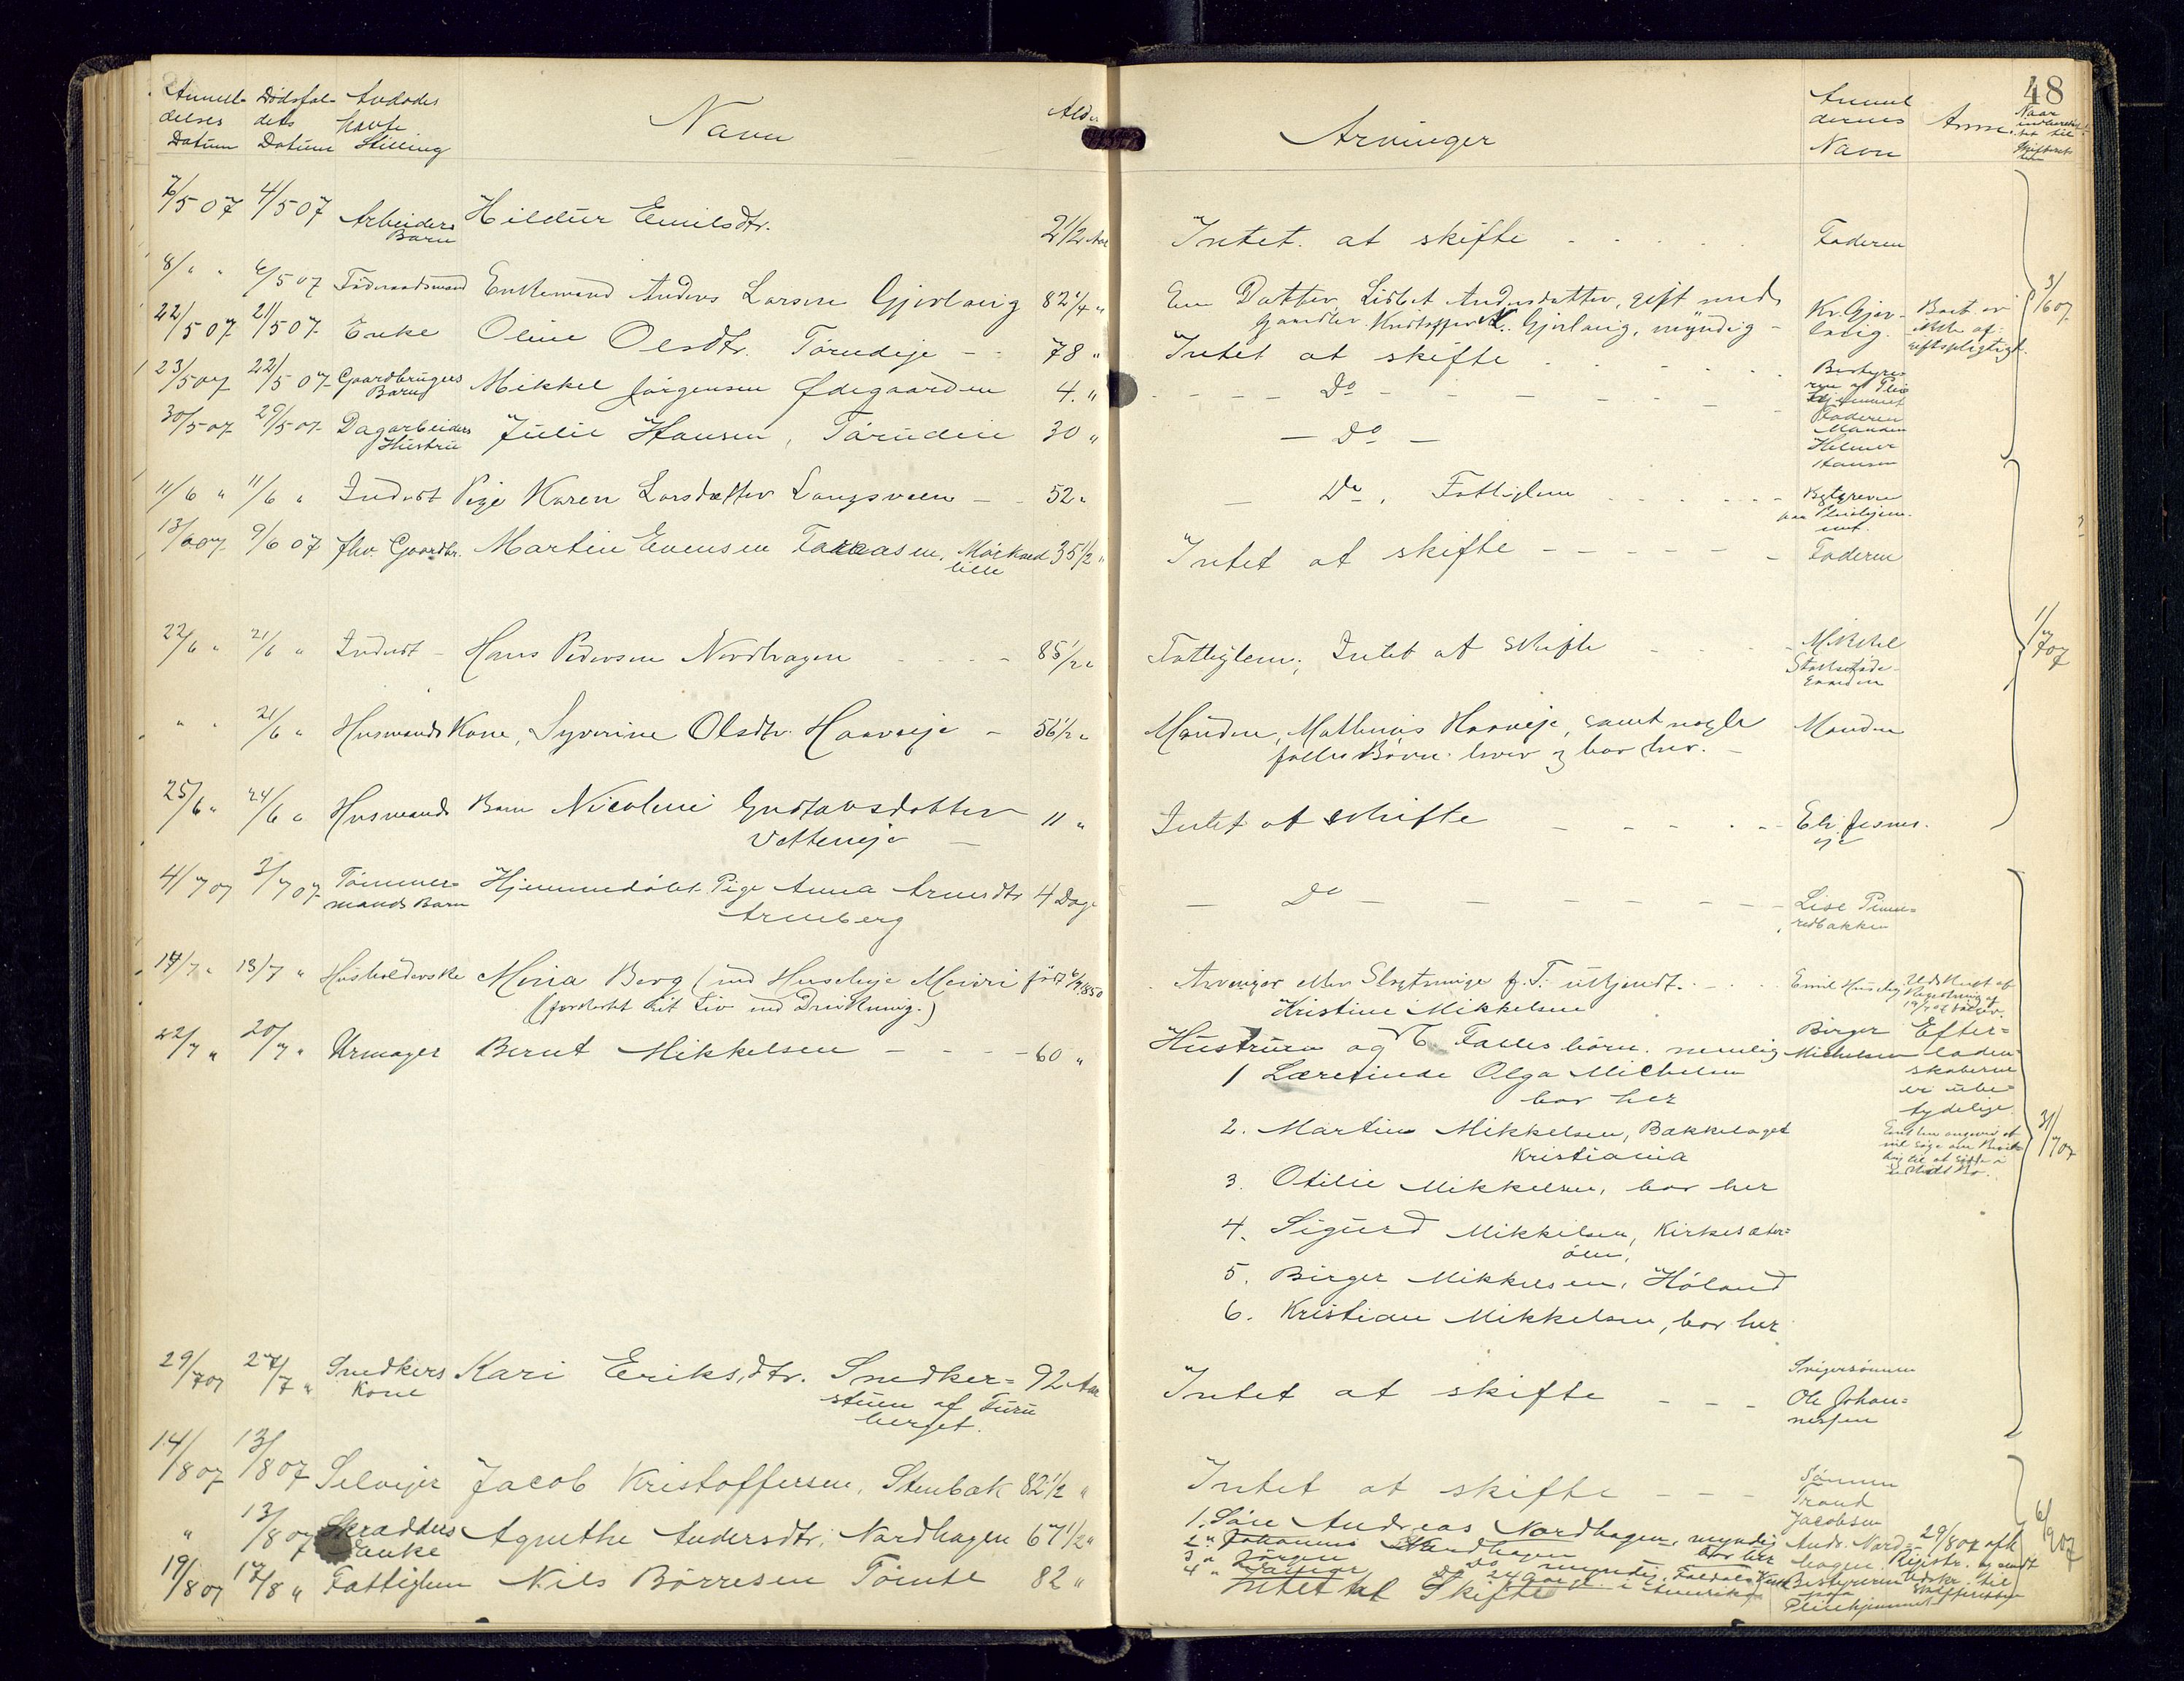 48
Anmel- Dødsfal- Avdødes
delses dets havte
Datum Datum Stilling Navn Alder Arvinger Anmel dernes Navn Anm. Naar indberettet til Skifteretten
7/5 07 4/5 07 Arbeiders Barn Hildur Emilsdtr. 2 1/2 Aar Intet at skifte Faderen
8/" " 6/5 07 Føderaadsmand Enkemand Anders Larsen Gjerlaug 82 1/4 " En Datter, Lisbet Andersdatter, gift med
Gaardbr. Kristoffer K. Gjerlaug, myndig - Kr. Gjerlaug. Boet er ikke afgiftspligtigt. 3/6 07
22/5 07 21/5 07 Enke Oline Olsdtr. Tørudeje - 78 " Intet at skifte Bestyreren af Pleiehjemmet
23/5 07 22/5 07 Gaardbrugers Barn Mikkel Jørgensen Ødegaarden 4. " - Do - Faderen
30/5 07 29/5 07 Dagarbeiders Hustru Julie Hansen, Tørudeie 30 " - Do - Manden Helmer Hansen
11/6 " 11/6 " Inderst Pige Karen Larsdatter Langsveen - 52 " - Do. Fattiglem Bestyreren paa Pleiehjemmet
13/6 07 9/6 07 fhv. Gaardbr. Martin Evensen 35 1/2 " Intet at skifte Faderen
22/6 " 21/6 " Inderst - Hans Pedersen Nordhagen 85 1/2 " Fattiglem; Intet at skifte Mikkel
1/7 07
" " 21/6 " Husmands Kone, Syverine Olsdtr. Haaveje - 56 1/2 " Manden, Mathias Haaveje, samt nogle Manden
fælles Børn. hver og bor her. -
25/6 " 24/6 " Husmands Barn Nicoline Gustavsdatter 11 " Intet at skifte
4/7 07 3/7 07 Tømmermands Barn Hjemmedøbt Pige Anna Arnesdtr. 4 Dage - Do - Lise
Arneberg
14/7 " 13/7 " Husholderske Mina Berg (ved Huseby født 1850 Arvinger eller Slægtninge p. T. ukjendt. Emil Huseby Udskrift af Registrering
(forkortet sit Liv ved Drukning.) Kristine Mikkelsen
22/7 " 20/7 " Urmager Bernt Mikkelsen - - - 60 " Hustruen og 6 Fælles børn. nemlig Birger Mikkelsen Efterladenskaberne er ubetydelige.
1 Lærerinde Olga Mikkelsen
bor her
2. Martin Mikkelsen, Bakkelaget
Kristiania
3. Otilie Mikkelsen, bor her 31/7 07
4. Sigurd Mikkelsen, Kirkesæterøren,
5. Birger Mikkelsen, Høland
6. Kristian Mikkelsen, bor her
29/7 07 27/7 " Snedkers Kone Kari Eriksdtr. Snedker= 92 Aar Intet at skifte - - - Svigersønnen
stuen af Furu Ole Johan=
berget. nessen
14/8 07 13/8 07 Selveier Jacob Kristoffersen, Stenbak 82 1/2 " Intet at skifte - - - Sønnen Trond Jacobsen
" 13/8 07 Skrædders Enke Agnethe Andersdtr. Nordhagen 67 1/2 " 1. Søn Andreas Nordhagen, myndig bor her Andr. Nordhagen 29/8 07 6/9 07
2 " Johannes Nordhagen
3 " Jørgen Do myndig
4 " i Amerika
19/8 07 17/8 " Fattiglem Nils Børresen Tomte 82 " Intet at Skifte Bestyreren Pleiehjemmet